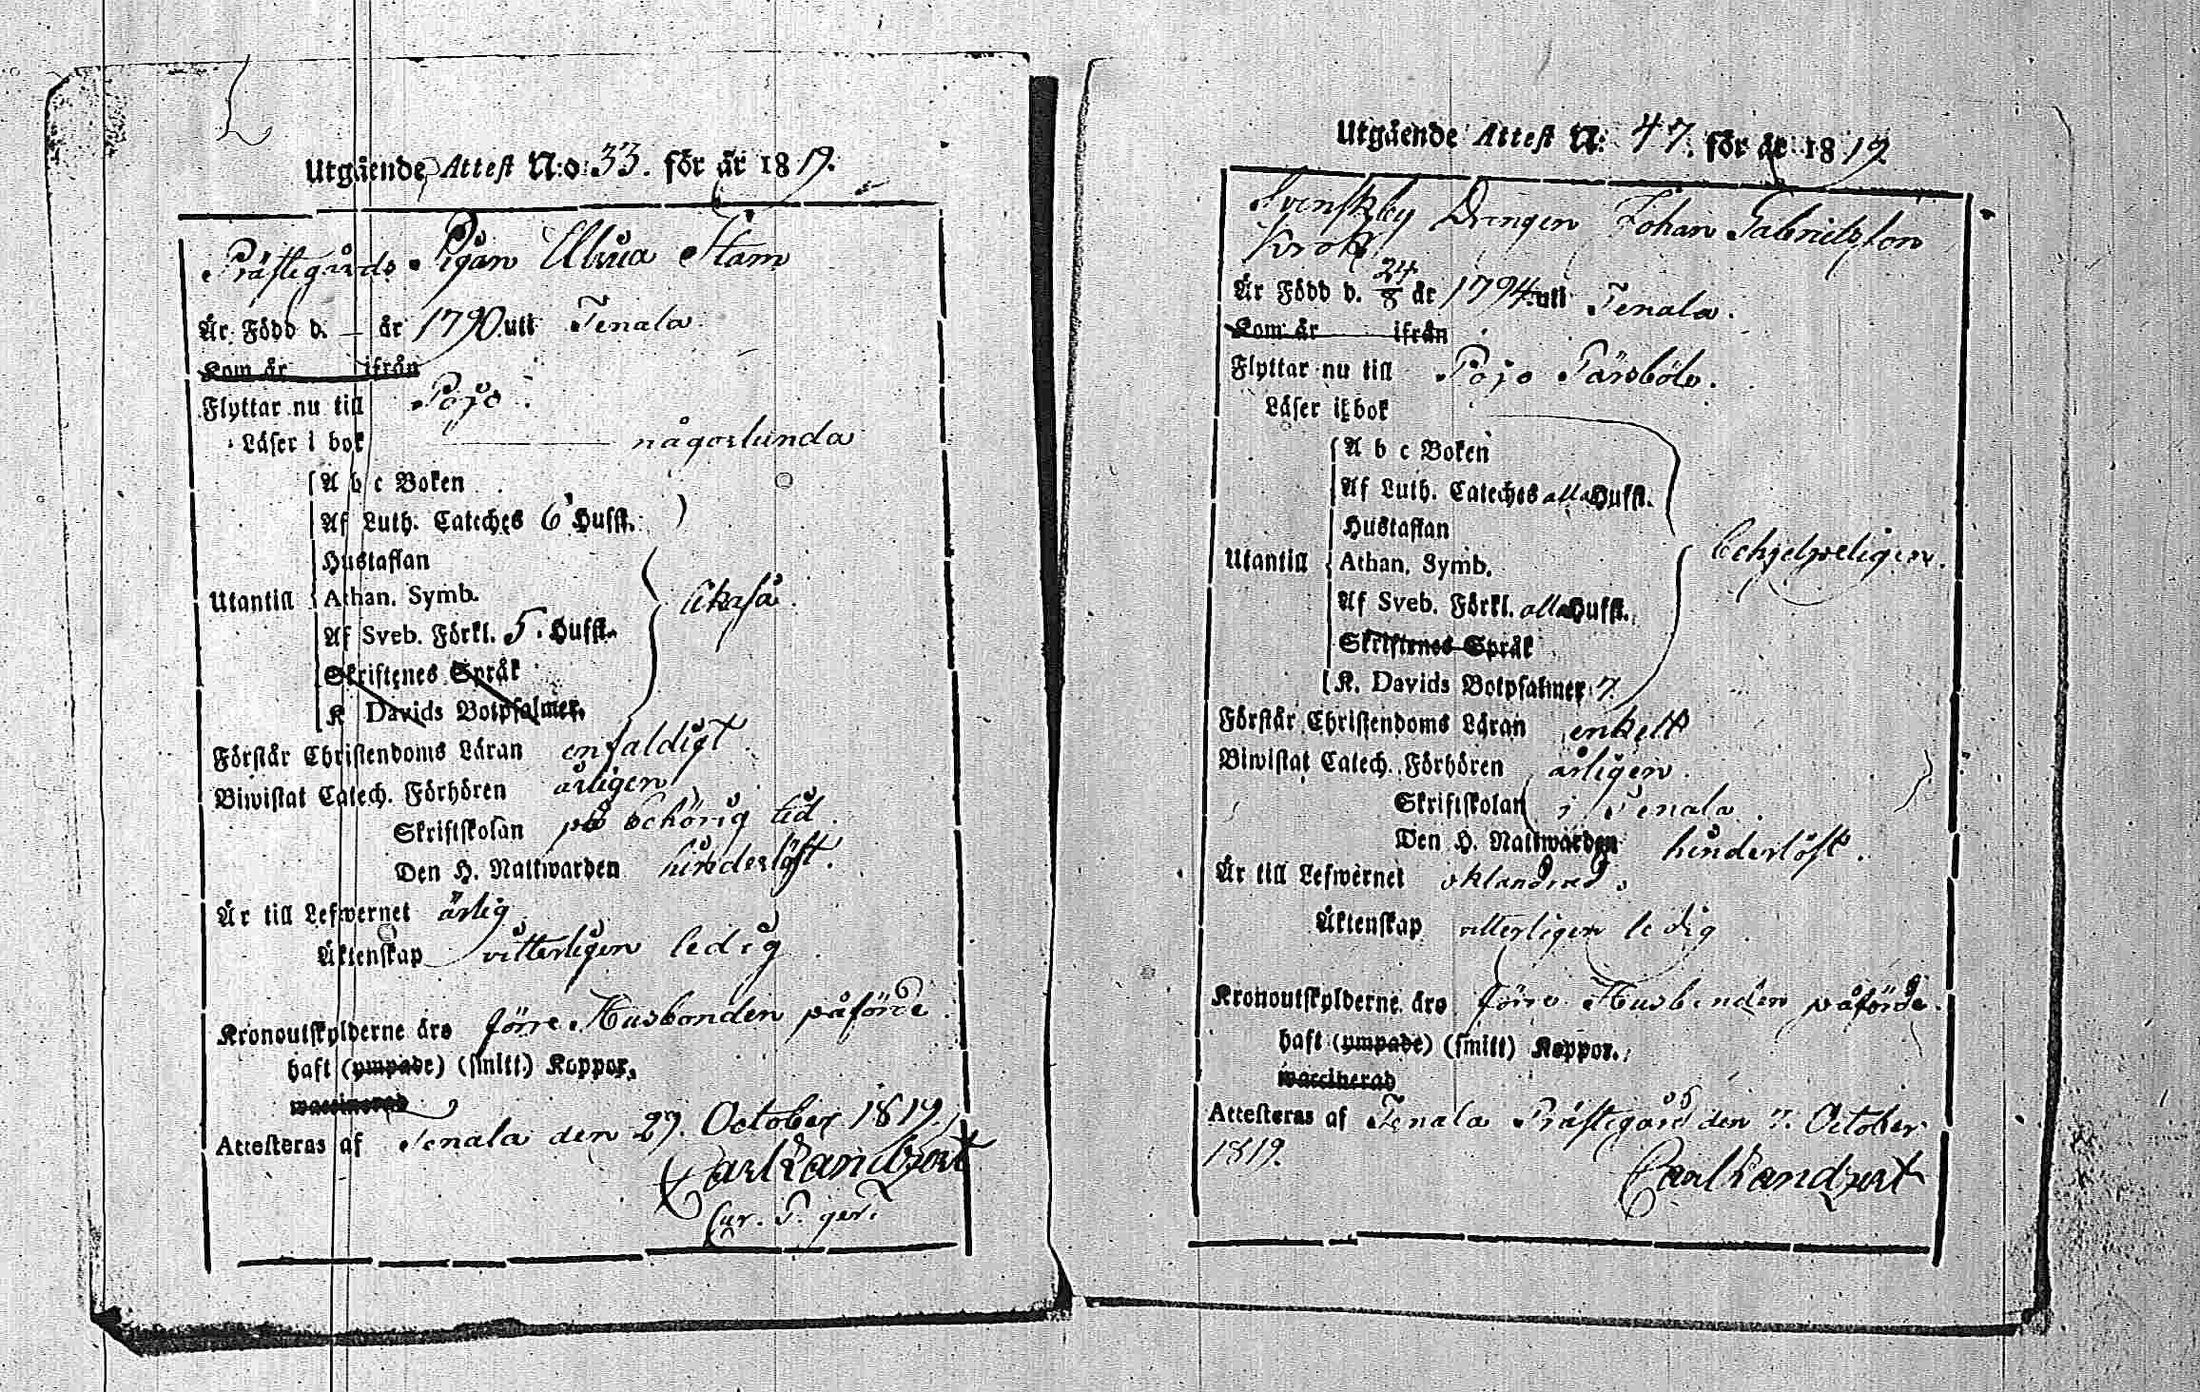 Utgående Attest N:o 33. för år 1819.
Prästegårds Pigan Ulrica Stam
Är Född d. — år 1790 uti Tenala
Kom år ifrån
Flyttar nu till Pojo.
Läser i bok någorlunda
A b c Boken
Af Luth. Cateches 6 Hufst.
Hustaflan
Utantill Athan. Symb. likaså
Af Sveb. Förkl. 5. Hufst.
Skriftenes Språk
K Davids Botpsalmer.
Förstår Christendoms Läran enfaldigt
Biwistat Catech. Förhören årligen
Skriftskolan på behörig tid.
Den H. Nattwarden hinderlöst.
Är till Lefwernet ärlig
Äktenskap vitterligen ledig
Kronoutskylderne äro förre Husbonden påförde.
haft (ympade) (smitt.) Koppor.
waccinerad
Attesteras af Tenala den 27. October 1819.
Carl
Utgående Attest N: 47. för år 1819
Svenskby Drengen Johan Gabrielsson
Krok
Är Född d. 24/8 år 1794 uti Tenala.
Kom år ifrån
Flyttar nu till Pojo Pärsböle.
Läser i bok
A b c Boken
Af Luth. Cateches alla Hufst.
Hustaflan
Utantill Athan. Symb.
Af Sveb. Förkl. alla Hufst.
Skriftenes Språk
K. Davids Botpsalmer 7.
Förstår Christendoms Läran enkelt
Biwistat Catech. Förhören årligen.
Skriftskolan i Tenala.
Den H. Nattwarden hinderlöst.
Är till Lefwernet oklandrad.
Äktenskap vitterligen ledig
Kronoutskylderne äro förre Husbonden påförde.
haft (ympade) (smitt) Koppor.
waccinerad
Attesteras af Tenala Prästegård den 7. October
1819.
Carl